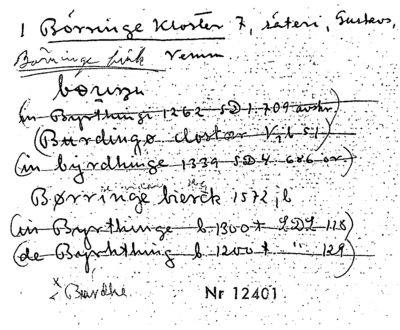 1 Börringe Kloster 7, säteri, Gustavs,
Börringe Vemm
(in Byrthingi 1262 SD 1 709 avskr)
(Burdingø closter V, b 51)
(in byrdhinge 1339 SD 4 686 or)
Børringe bierck 1572 jb
(in Byrthinge b. 1300 t LDL 118)
(de Byrthing b 1200 t " 129)
Nr 12401